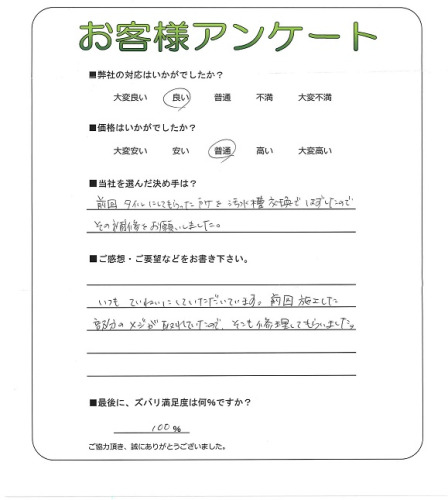 お客様アンケート
■弊社の対応はいかがでしたか？
大変良い 良い 普通 不満 大変不満
■価格はいかがでしたか？
大変安い 安い 普通 高い 大変高い
■当社を選んだ決め手は？
前回 タイルにしてもらった所を 汚水槽交換で はずしたので
その補修をお願いしました。
■ご感想・ご要望などをお書き下さい。
いつも ていねいにしていただいています。前回 施工した
部分の メジが 取れていたので、そこも修理してもらいました。
■最後に、ズバリ満足度は何％ですか？
100 %
ご協力頂き、誠にありがとうございました。